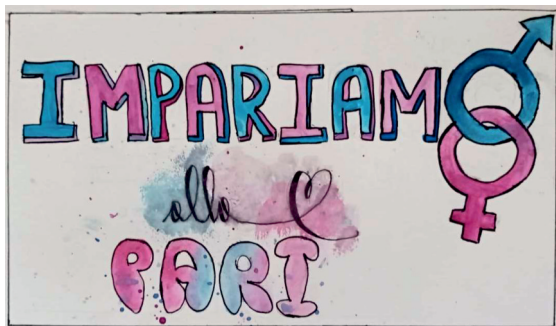 IMPARIAMO
alla
PARI